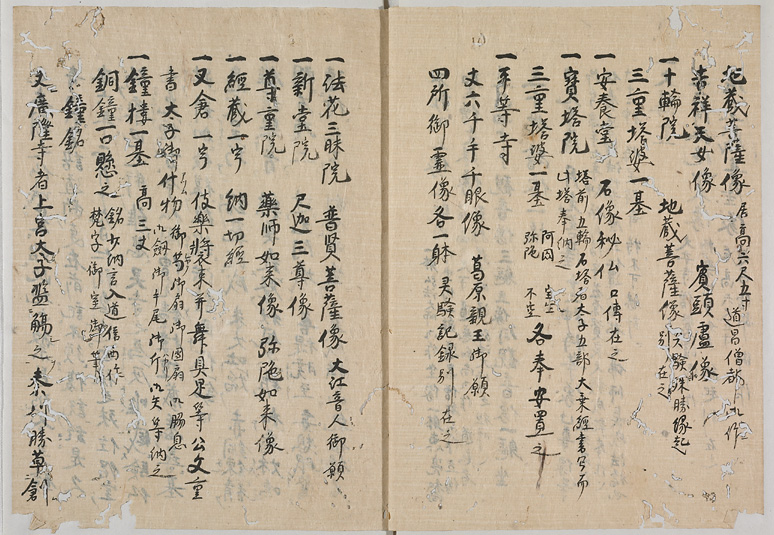 地蔵菩薩像 居高六尺五寸 道昌僧都御作
吉祥天女像 賓頭盧像
一十輪院 地蔵菩薩像 霊験殊勝縁起別在之
三重塔婆一基
一安養堂 石像秘仏 口傳在之
一寶塔院 塔前五輪石塔有太子五部大乗経書写而此塔奉納之
三重塔婆一基 阿閦 宝生 弥陀 不空 各奉安置之
一平等寺
丈六千手千眼像 葛原親王御願
四所御霊像各一躰 霊験記録別在之
一法花三昧院 普賢菩薩像 大江音人御願
一新堂院 尺迦三尊像
一尊重院 薬師如来像 弥陀如来像
一經蔵一宇 納一切經
一又倉一宇 伎樂装束并舞具足等公文重
書太子御什物 御笏御扇御團扇御脇息御劔御牛尾御斤御矢等納之
一鐘樓一基 高三丈
銅鐘一口懸之 銘少納言入道信西作 梵字御室御筆
鐘銘
夫廣隆寺者上宮太子濫觴之秦川勝草創